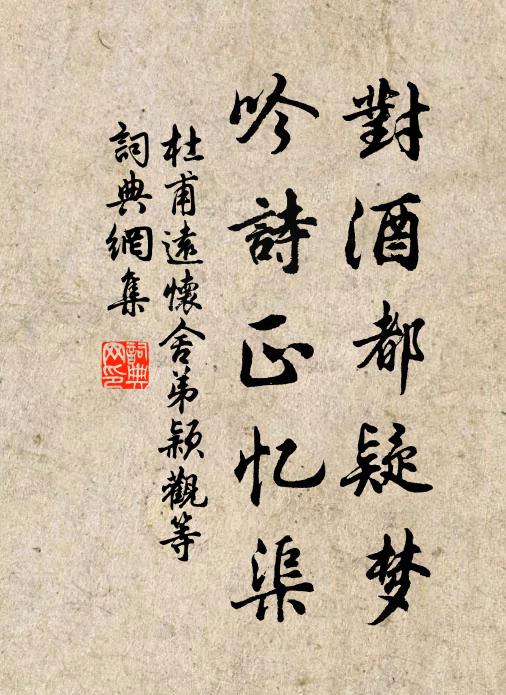 對酒都疑梦
吟詩正忆渠
杜甫遠懷舍弟颖觀等
詞典網集
詞典网印